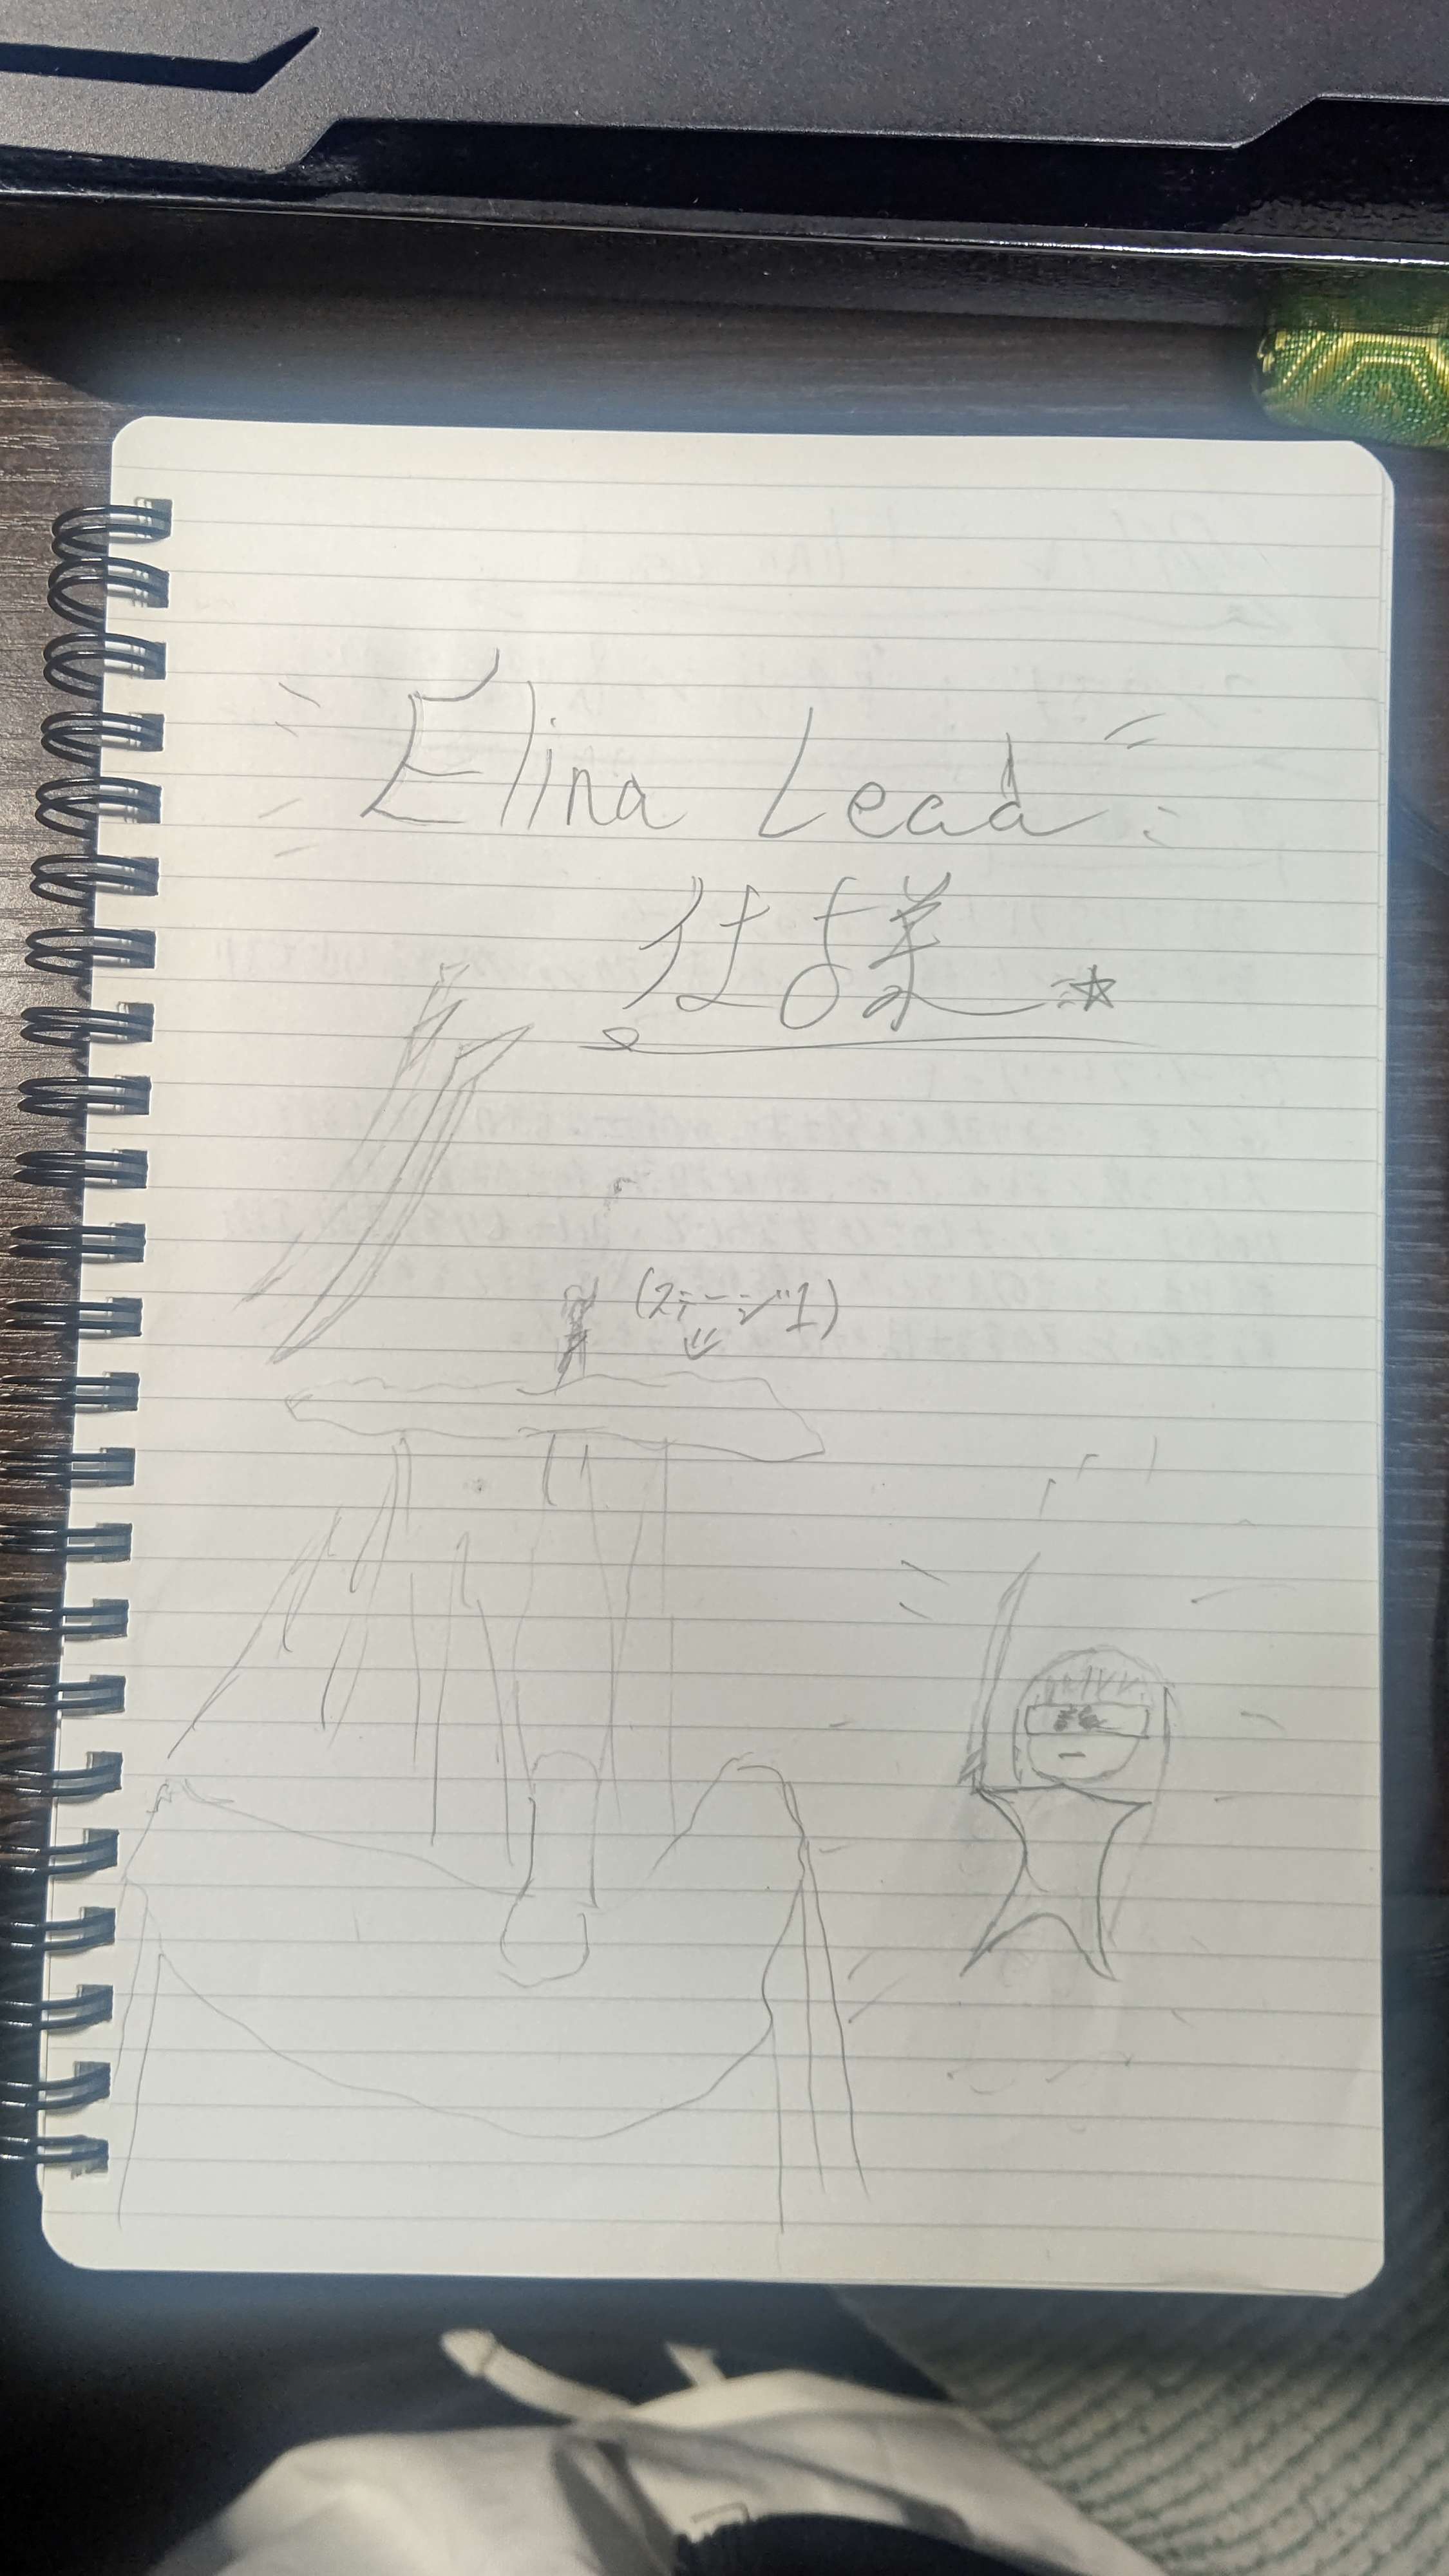 Elina Lead
仕様
(ステージ1)